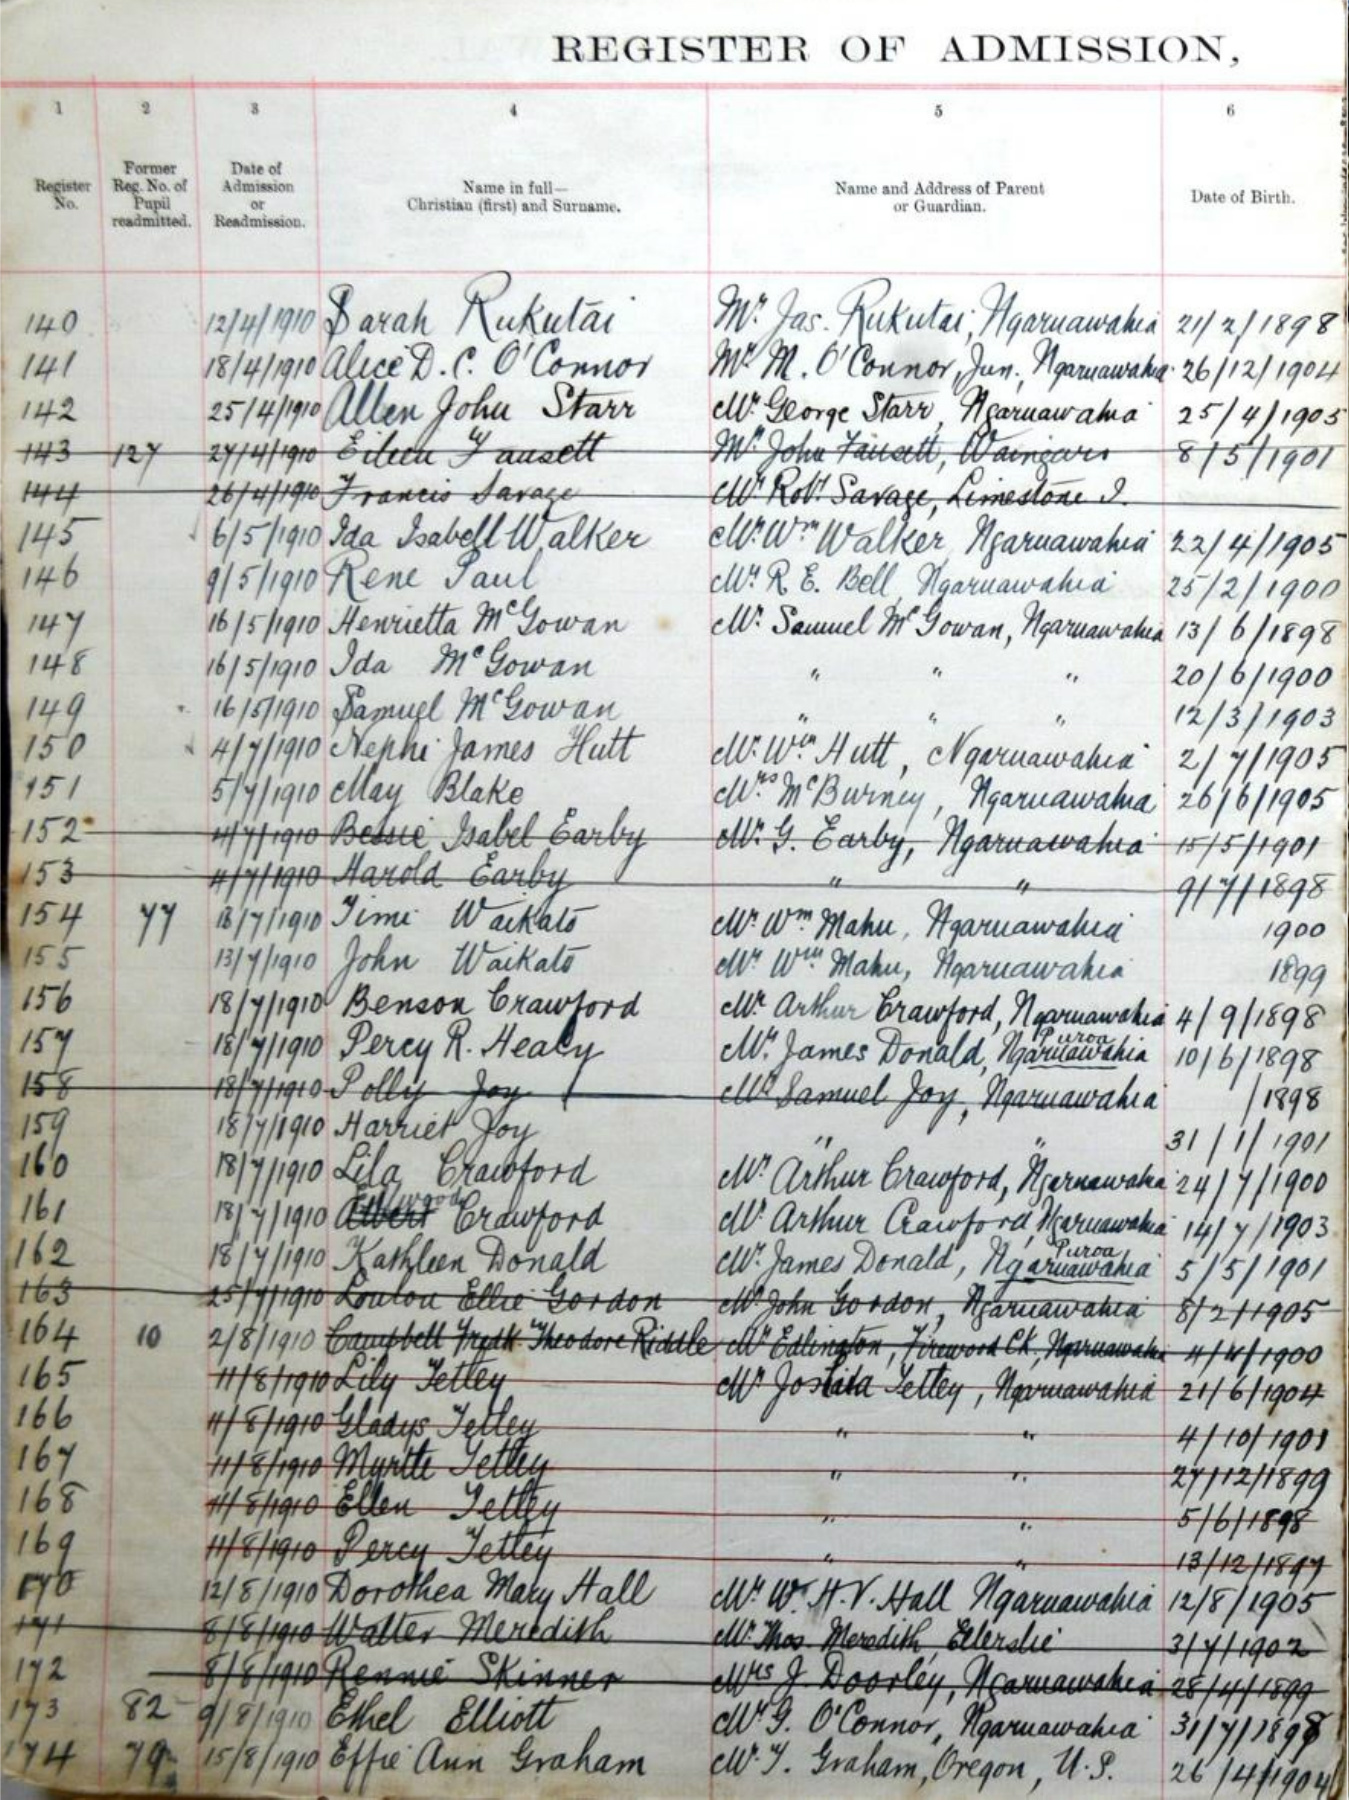 REGISTER OF ADMISSION,
1 2 3 4 5 6
Register No. Former Reg. No. of Pupil readmitted. Date of Admission or Readmission. Name in full— Christian (first) and Surname. Name and Address of Parent or Guardian. Date of Birth.
140 12/4/1910 Sarah Rukutai Mr. Jas. Rukutai, Ngaruawahia 21/2/1898
141 18/4/1910 Alice D. C. O'Connor Mr. M. O'Connor, Jun., Ngaruawahia 26/12/1904
142 25/4/1910 Allen John Starr Mr. George Starr, Ngaruawahia 25/4/1905
143 127 27/4/1910 Eileen Fausett Mr. John Fausett, Waingaro 8/5/1901
144 26/4/1910 Francis Savage Mr. Robt Savage, Limestone I.
145 6/5/1910 Ida Isabell Walker Mr. Wm Walker, Ngaruawahia 22/4/1905
146 9/5/1910 Rene Paul Mr. R. E. Bell, Ngaruawahia 25/2/1900
147 16/5/1910 Henrietta McGowan Mr. Samuel McGowan, Ngaruawahia 13/6/1898
148 16/5/1910 Ida McGowan " " " 20/6/1900
149 16/5/1910 Samuel McGowan " " " 12/3/1903
150 4/7/1910 Nephi James Hutt Mr. Wm Hutt, Ngaruawahia 2/7/1905
151 5/7/1910 May Blake Mrs McBurney, Ngaruawahia 26/6/1905
152 4/7/1910 Bessie Isabel Earby Mr. G. Earby, Ngaruawahia 15/5/1901
153 4/7/1910 Harold Earby " " 9/7/1898
154 77 13/7/1910 Timi Waikato Mr. Wm. Mahu, Ngaruawahia 1900
155 13/7/1910 John Waikato Mr. Wm Mahu, Ngaruawahia 1899
156 18/7/1910 Benson Crawford Mr. Arthur Crawford, Ngaruawahia 4/9/1898
157 18/7/1910 Percy R. Healy Mr. James Donald, Ngaruawahia Puroa 10/6/1898
158 18/7/1910 Polly Joy Mr. Samuel Joy, Ngaruawahia /1898
159 18/7/1910 Harriet Joy " " 31/1/1901
160 18/7/1910 Lila Crawford Mr. Arthur Crawford, Ngaruawahia 24/7/1900
161 18/7/1910 Albert Crawford Mr. Arthur Crawford, Ngaruawahia 14/7/1903
162 18/7/1910 Kathleen Donald Mr. James Donald, Ngaruawahia Puroa 5/5/1901
163 25/7/1910 Loulou Ellie Gordon Mr. John Gordon, Ngaruawahia 8/2/1905
164 10 2/8/1910 Campbell Fredk Theodore Riddle Mr Edlington, Firewood Ck, Ngaruawahia 4/4/1900
165 11/8/1910 Lily Tetley Mr. Tetley, Ngaruawahia 21/6/1904
166 11/8/1910 Gladys Tetley " " 4/10/1901
167 11/8/1910 Myrtle Tetley " " 27/12/1899
168 11/8/1910 Ellen Tetley " " 5/6/1898
169 11/8/1910 Percy Tetley " " 13/12/1897
170 12/8/1910 Dorothea Mary Hall Mr. W. H. V. Hall Ngaruawahia 12/8/1905
171 8/8/1910 Walter Meredith Mr. Thos. Meredith, Ellerslie 3/7/1902
172 8/8/1910 Rennie Skinner Mrs J. Doorley, Ngaruawahia 28/4/1899
173 82 9/8/1910 Ethel Elliott Mr. G. O'Connor, Ngaruawahia 31/7/1898
174 79 15/8/1910 Effie Ann Graham Mr. T. Graham, Oregon, U.S. 26/4/1904